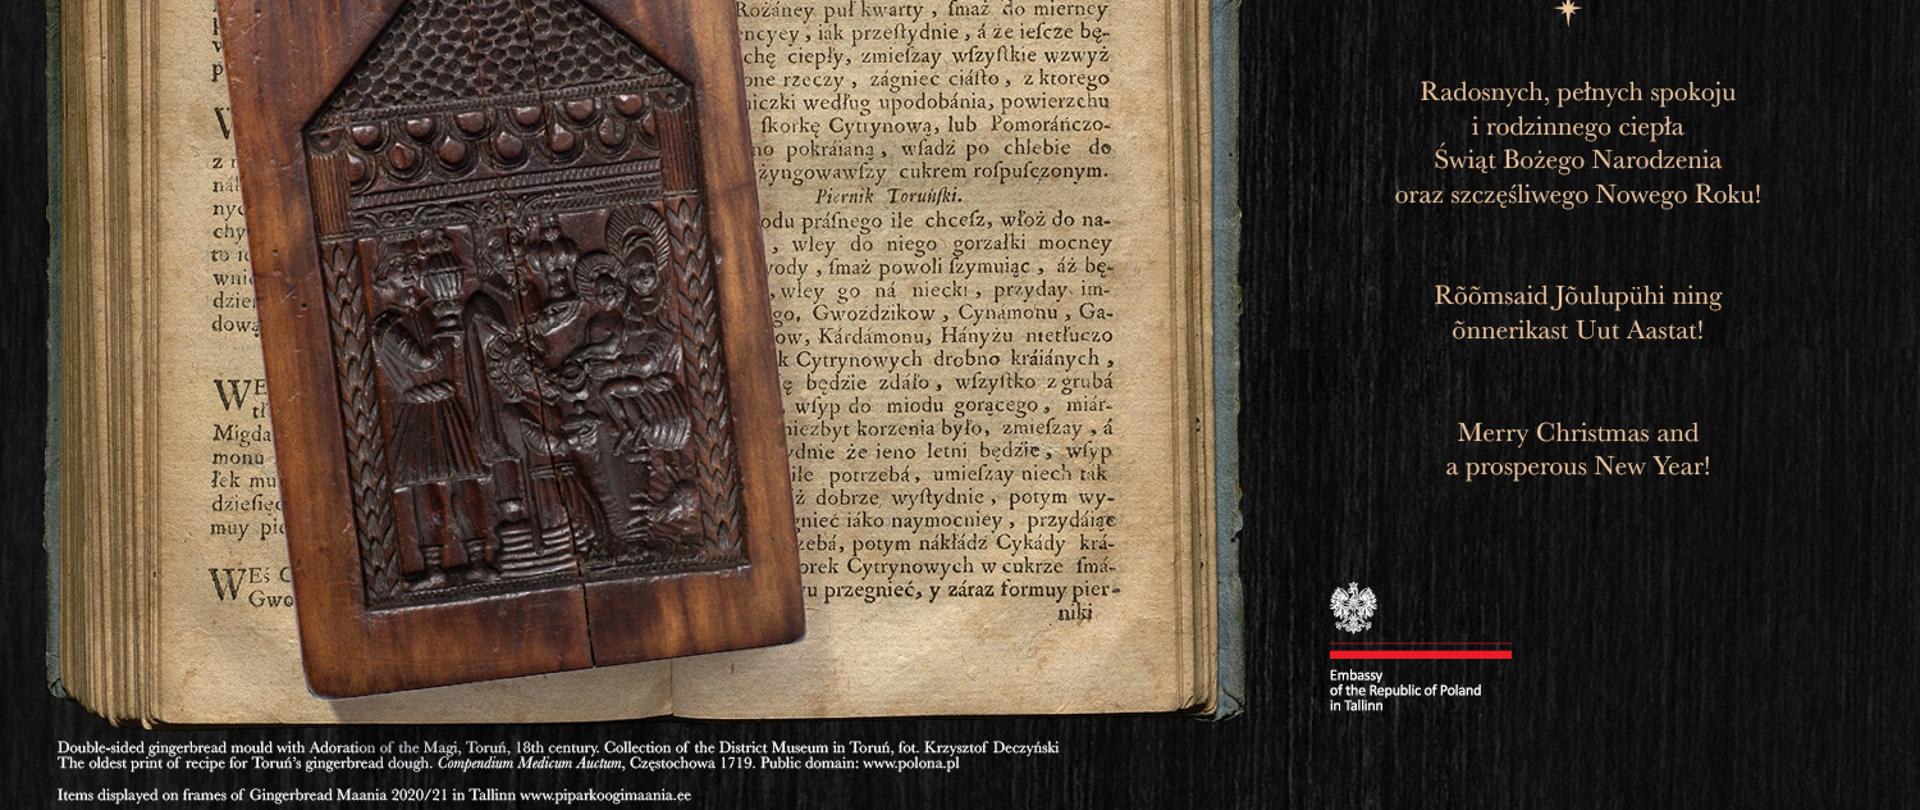 Rożáney puł kwarty , ſmaż do mierney
ncyey , iak przeſtydnie , á że ieſcze bę-
chę ciepły, zmieſzay wſzyſtkie wzwyż
one rzeczy , zágnieć ciáſto , z ktorego
niczki według upodobánia, powierzchu
ſkorkę Cytrynową, lub Pomoráńczo-
no pokráianą , wſadź po chlebie do
żyngowawſzy cukrem roſpuſczonym.
Piernik Toruńſki.
odu práſnego ile chceſz, włoż do na-
, wley do niego gorzałki mocney
vody , ſmaż powoli ſzymuiąc , áż bę-
, wley go ná niecki , przyday im-
go, Gwoździkow , Cynámonu , Ga-
ow, Kárdámonu, Hányżu nietłuczo
k Cytrynowych drobno kráiánych ,
ę będzie zdáło , wſzyſtko z grubá
wſyp do miodu gorącego , miár-
niezbyt korzenia było, zmieſzay , á
ydnie że ieno letni będzie , wſyp
ile potrzebá, umieſzay niech ták
ż dobrze wyſtydnie , potym wy-
gnieć iáko naymocniey , przydáiąc
zebá, potym nákłádź Cykády krá-
orek Cytrynowych w cukrze ſmá-
u przegnieć, y záraz formuy pier-
niki
nyc
chy
to
wnie
dzień
dową
WE
Migda
monu
łek mu
dzieſięć
muy pie
WEś C
Gwo
Radosnych, pełnych spokoju
i rodzinnego ciepła
Świąt Bożego Narodzenia
oraz szczęśliwego Nowego Roku!
Rõõmsaid Jõulupühi ning
õnnerikast Uut Aastat!
Merry Christmas and
a prosperous New Year!
Embassy
of the Republic of Poland
in Tallinn
Double-sided gingerbread mould with Adoration of the Magi, Toruń, 18th century. Collection of the District Museum in Toruń, fot. Krzysztof Deczyński
The oldest print of recipe for Toruń's gingerbread dough. Compendium Medicum Auctum, Częstochowa 1719. Public domain: www.polona.pl
Items displayed on frames of Gingerbread Maania 2020/21 in Tallinn www.piparkoogimaania.ee